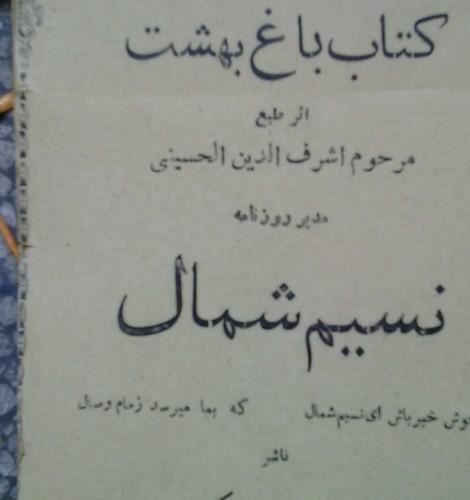 کتاب باغ بهشت
اثر طبع
مرحوم اشرف الدین الحسینی
مدیر روزنامه
نسیم شمال
خوش خبر باش ای نسیم شمال که بما میرسد زمام وصال
ناشر